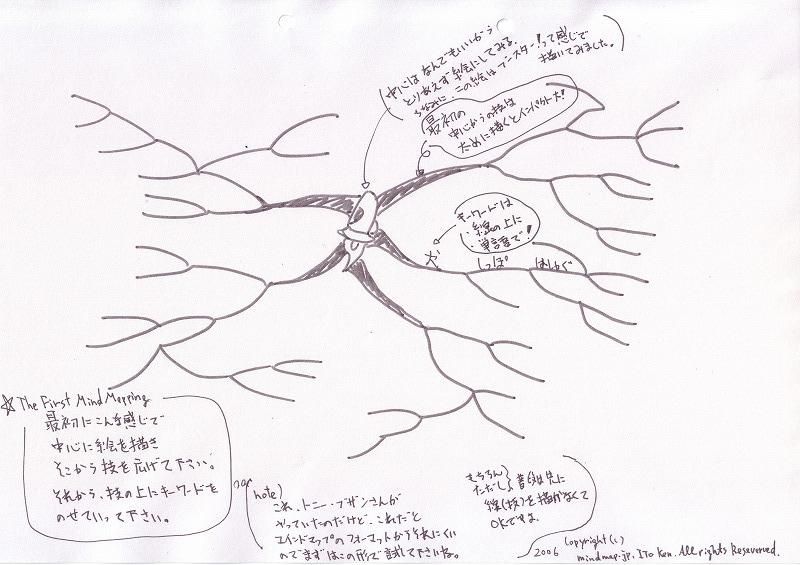 中心はなんでもいいから
とりあえず絵にしてみる。
ちなみに、この絵はブースター!って感じで
描いてみました。
最初の
中心からの枝は
太めに描くとインパクト大!
キーワードは
絵の上に
単語で!
犬
しっぽ
はしゃぐ
☆ The First Mind Mapping
最初にこんな感じで
中心に絵を描き
そこから枝を広げて下さい。
それから、枝の上にキーワードを
のせていって下さい。
note)
これ、トニー・ブザンさんが
やっていたのだけど、これだと
マインドマップのフォーマットから外れにくい
のでまずはこの形で試して下さいね。
もちろん
ただし、普段は先に
線(枝)を描かなくて
OKですよ。
2006 Copyright(c)
mindmap.jp. ITo Ken. All rights Reserverd.